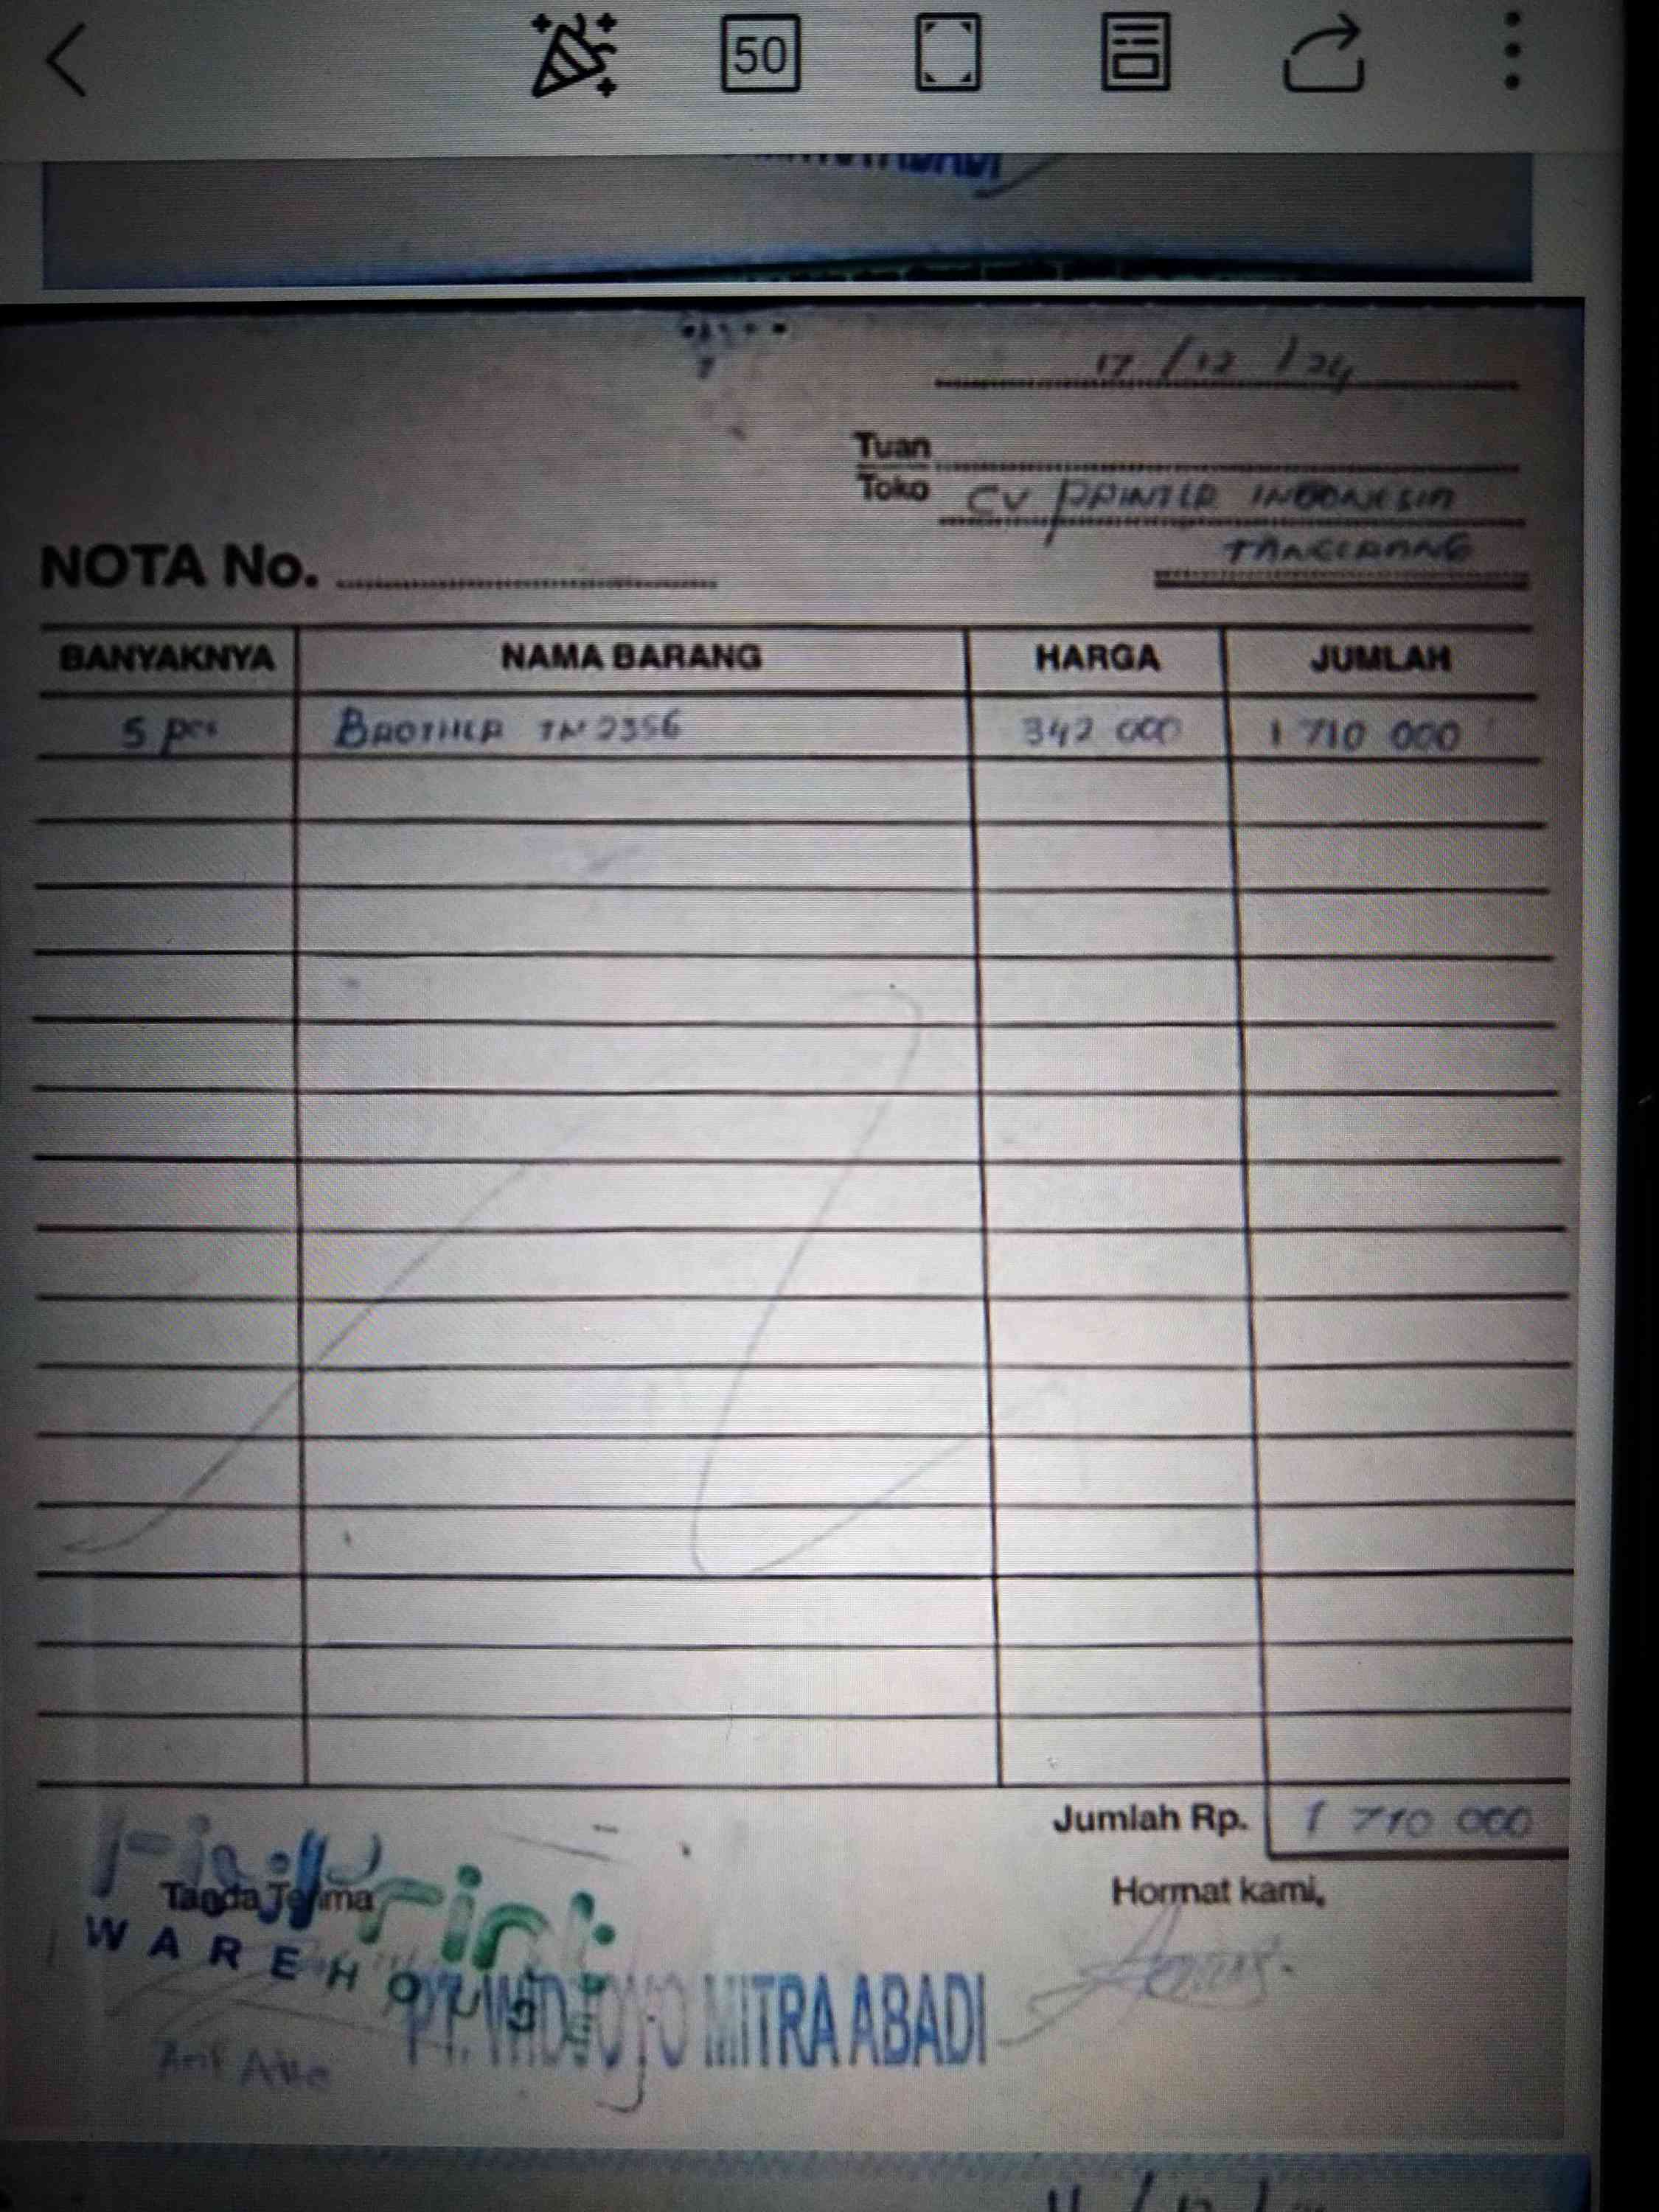 50
17 / 12 / 24
Tuan
Toko CV PRINTER INDONESIA
TANGERANG
NOTA No.
BANYAKNYA NAMA BARANG HARGA JUMLAH
5 pcs BROTHER TN 2356 342 000 1 710 000
Jumlah Rp. 1 710 000
Tanda Terima Hormat kami,
WAREHOUSE
PT. WIDJOYO MITRA ABADI